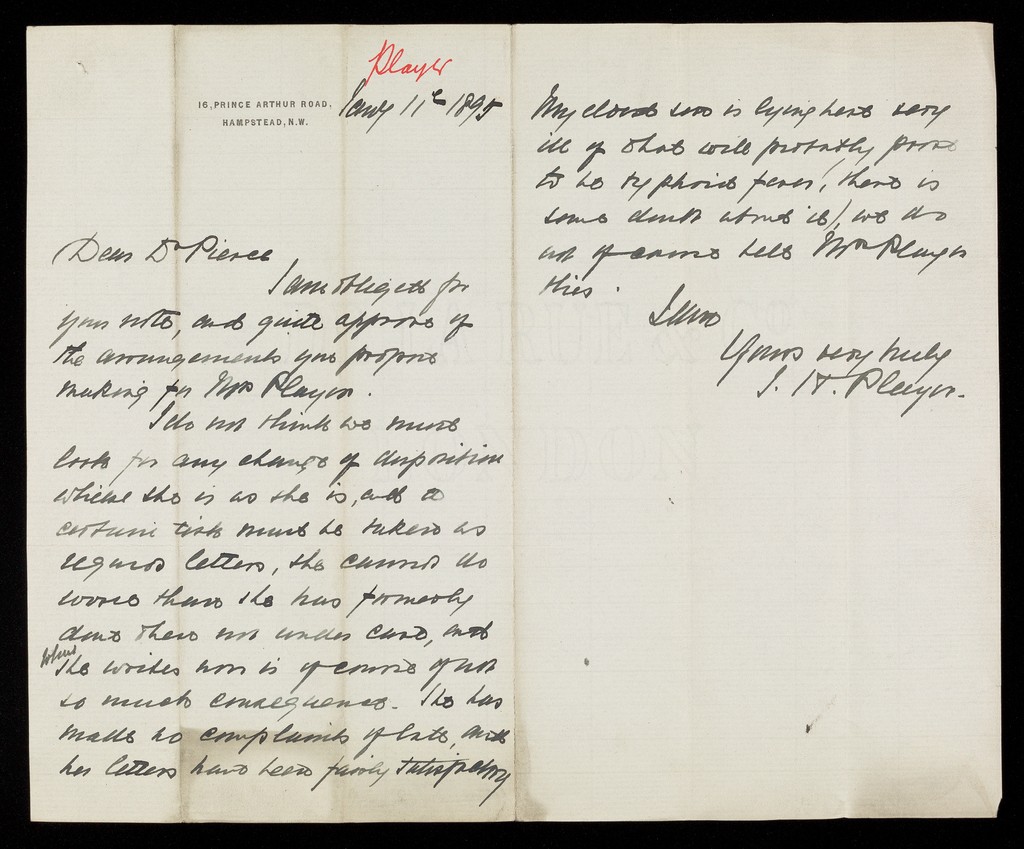 Player
16, PRINCE ARTHUR ROAD,
HAMPSTEAD, N.W.
Jany 11th 1895
Dear Dr Pierce
I am obliged for
your note, and quite approve of
the arrangements you propose
making for Mrs Player.
I do not think we must
look for any change of disposition
while she is as she is, and a
certain risk must be taken as
regards letters, she cannot do
worse than she has formerly
done when not under care, and
what
she writes now is of course of not
so much consequence. She has
made no complaints of late, and
her letters have been fairly satisfactory
My eldest son is lying here very
ill of what will probably prove
to be typhoid fever, (there is
some doubt about it), we do
not of course tell Mrs Player
this.
I am
Yours very truly
J. H. Player.